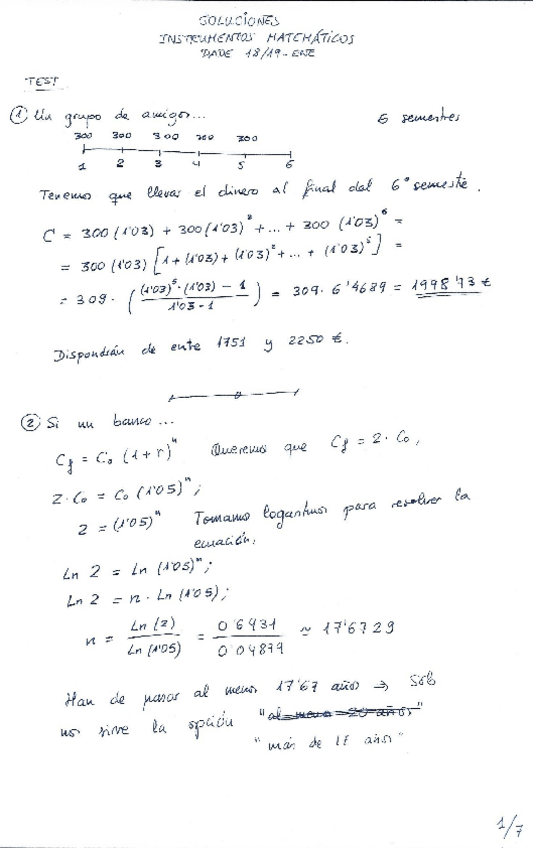 SOLUCIONES
INSTRUMENTOS MATEMÁTICOS
DADE 18/19-ENE
TEST
① Un grupo de amigos... 6 semestres
300 300 300 300 300
1 2 3 4 5 6
Tenemos que llevar el dinero al final del 6º semestre.
C = 300 (1'03) + 300 (1'03)² + ... + 300 (1'03)⁶ =
= 300 (1'03) [1 + (1'03) + (1'03)² + ... + (1'03)⁵] =
= 309 · ( (1'03)⁵ · (1'03) - 1 / 1'03 - 1 ) = 309 · 6'4689 = 1998'73 €
Dispondrán de entre 1751 y 2250 €.
② Si un banco...
Cf = C₀ (1+r)ⁿ Queremos que Cf = 2 · C₀,
2 · C₀ = C₀ (1'05)ⁿ;
2 = (1'05)ⁿ Tomamos logaritmos para resolver la
ecuación.
Ln 2 = Ln (1'05)ⁿ;
Ln 2 = n · Ln (1'05);
n = Ln (2) / Ln (1'05) = 0'6931 / 0'04879 ≃ 17'6729
Han de pasar al menos 17'67 años ⇒ Sólo
nos sirve la opción "al menos 20 años"
"más de 17 años"
1/7